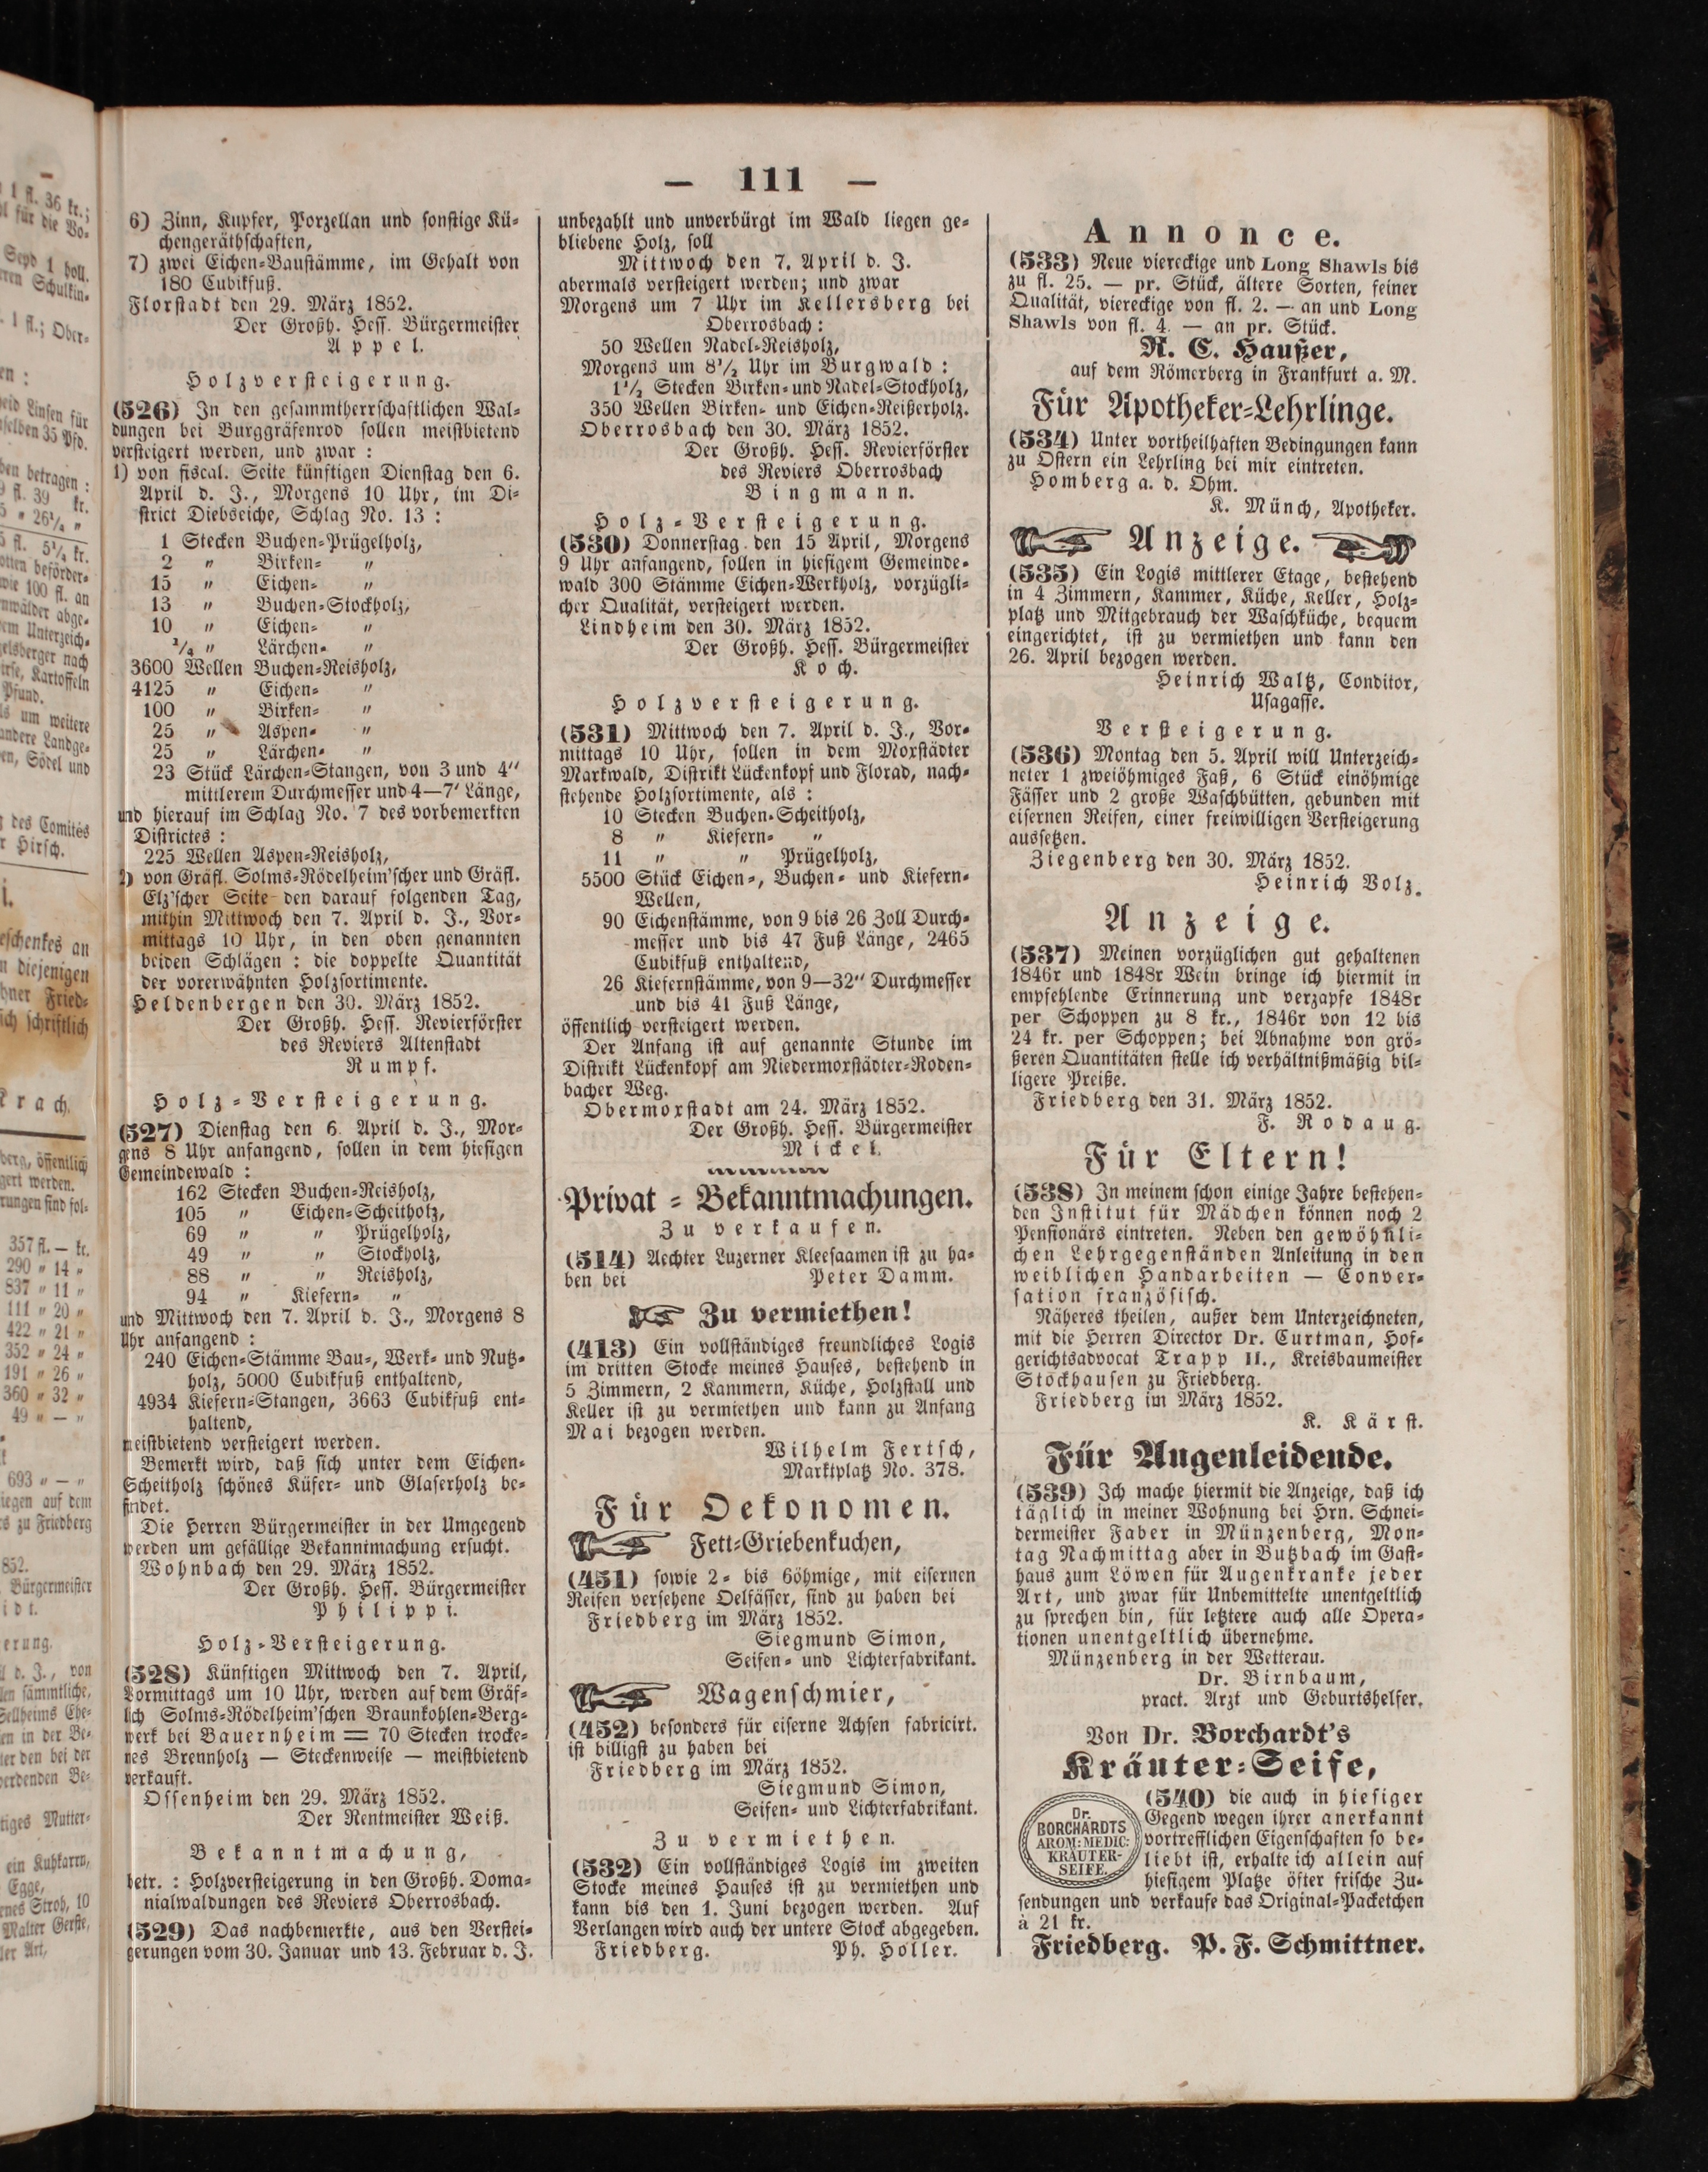 — 111 —
6) Zinn, Kupfer, Porzellan und sonstige Kü-
chengeräthschaften,
7) zwei Eichen-Baustämme, im Gehalt von
180 Cubikfuß.
Florstadt den 29. März 1852.
Der Großh. Hess. Bürgermeister
Appel.
Holzversteigerung.
(526) In den gesammtherrschaftlichen Wal-
dungen bei Burggräfenrod sollen meistbietend
versteigert werden, und zwar :
1) von fiscal. Seite künftigen Dienstag den 6.
April d. J., Morgens 10 Uhr, im Di-
strict Diebseiche, Schlag No. 13 :
1 Stecken Buchen-Prügelholz,
2 " Birken- "
15 " Eichen- "
13 " Buchen-Stockholz,
10 " Eichen- "
¾ " Lärchen- "
3600 Wellen Buchen-Reisholz,
4125 " Eichen- "
100 " Birken- "
25 " Aspen- "
25 " Lärchen- "
23 Stück Lärchen-Stangen, von 3 und 4"
mittlerem Durchmesser und 4—7' Länge,
und hierauf im Schlag No. 7 des vorbemerkten
Districtes :
225 Wellen Aspen-Reisholz,
2) von Gräfl. Solms-Rödelheim'scher und Gräfl.
Elz'scher Seite den darauf folgenden Tag,
mithin Mittwoch den 7. April d. J., Vor-
mittags 10 Uhr, in den oben genannten
beiden Schlägen : die doppelte Quantität
der vorerwähnten Holzsortimente.
Heldenbergen den 30. März 1852.
Der Großh. Hess. Revierförster
des Reviers Altenstadt
Rumpf.
Holz-Versteigerung.
(527) Dienstag den 6. April d. J., Mor-
gens 8 Uhr anfangend, sollen in dem hiesigen
Gemeindewald :
162 Stecken Buchen-Reisholz,
105 " Eichen-Scheitholz,
69 " " Prügelholz,
49 " " Stockholz,
88 " " Reisholz,
94 " Kiefern- "
und Mittwoch den 7. April d. J., Morgens 8
Uhr anfangend :
240 Eichen-Stämme Bau-, Werk- und Nutz-
holz, 5000 Cubikfuß enthaltend,
4934 Kiefern-Stangen, 3663 Cubikfuß ent-
haltend,
meistbietend versteigert werden.
Bemerkt wird, daß sich unter dem Eichen-
Scheitholz schönes Küfer- und Glaserholz be-
findet.
Die Herren Bürgermeister in der Umgegend
werden um gefällige Bekanntmachung ersucht.
Wohnbach den 29. März 1852.
Der Großh. Hess. Bürgermeister
Philippi.
Holz-Versteigerung.
(528) Künftigen Mittwoch den 7. April,
Vormittags um 10 Uhr, werden auf dem Gräf-
lich Solms-Rödelheim'schen Braunkohlen-Berg-
werk bei Bauernheim = 70 Stecken trocke-
nes Brennholz — Steckenweise — meistbietend
verkauft.
Ossenheim den 29. März 1852.
Der Rentmeister Weiß.
Bekanntmachung,
betr. : Holzversteigerung in den Großh. Doma-
nialwaldungen des Reviers Oberrosbach.
(529) Das nachbemerkte, aus den Verstei-
gerungen vom 30. Januar und 13. Februar d. J.
unbezahlt und unverbürgt im Wald liegen ge-
bliebene Holz, soll
Mittwoch den 7. April d. J.
abermals versteigert werden; und zwar
Morgens um 7 Uhr im Kellersberg bei
Oberrosbach :
50 Wellen Nadel-Reisholz,
Morgens um 8½ Uhr im Burgwald :
1½ Stecken Birken- und Nadel-Stockholz,
350 Wellen Birken- und Eichen-Reißerholz.
Oberrosbach den 30. März 1852.
Der Großh. Hess. Revierförster
des Reviers Oberrosbach
Bingmann.
Holz-Versteigerung.
(530) Donnerstag den 15 April, Morgens
9 Uhr anfangend, sollen in hiesigem Gemeinde-
wald 300 Stämme Eichen-Werkholz, vorzügli-
cher Qualität, versteigert werden.
Lindheim den 30. März 1852.
Der Großh. Hess. Bürgermeister
Koch.
Holzversteigerung.
(531) Mittwoch den 7. April d. J., Vor-
mittags 10 Uhr, sollen in dem Morstädter
Markwald, Distrikt Lückenkopf und Florad, nach-
stehende Holzsortimente, als :
10 Stecken Buchen-Scheitholz,
8 " Kiefern- "
11 " " Prügelholz,
5500 Stück Eichen-, Buchen- und Kiefern-
Wellen,
90 Eichenstämme, von 9 bis 26 Zoll Durch-
messer und bis 47 Fuß Länge, 2465
Cubikfuß enthaltend,
26 Kiefernstämme, von 9—32" Durchmesser
und bis 41 Fuß Länge,
öffentlich versteigert werden.
Der Anfang ist auf genannte Stunde im
Distrikt Lückenkopf am Niedermorstädter-Roden-
bacher Weg.
Obermorstadt am 24. März 1852.
Der Großh. Hess. Bürgermeister
Mickel.
Privat-Bekanntmachungen.
Zu verkaufen.
(514) Aechter Luzerner Kleesaamen ist zu ha-
ben bei Peter Damm.
Zu vermiethen!
(413) Ein vollständiges freundliches Logis
im dritten Stocke meines Hauses, bestehend in
5 Zimmern, 2 Kammern, Küche, Holzstall und
Keller ist zu vermiethen und kann zu Anfang
Mai bezogen werden.
Wilhelm Fertsch,
Marktplatz No. 378.
Für Oekonomen.
Fett-Griebenkuchen,
(451) sowie 2- bis 6öhmige, mit eisernen
Reifen versehene Oelfässer, sind zu haben bei
Friedberg im März 1852.
Siegmund Simon,
Seifen- und Lichterfabrikant.
Wagenschmier,
(452) besonders für eiserne Achsen fabricirt.
ist billigst zu haben bei
Friedberg im März 1852.
Siegmund Simon,
Seifen- und Lichterfabrikant.
Zu vermiethen.
(532) Ein vollständiges Logis im zweiten
Stocke meines Hauses ist zu vermiethen und
kann bis den 1. Juni bezogen werden. Auf
Verlangen wird auch der untere Stock abgegeben.
Friedberg. Ph. Holler.
Annonce.
(533) Neue viereckige und Long Shawls bis
zu fl. 25. — pr. Stück, ältere Sorten, feiner
Qualität, viereckige von fl. 2. — an und Long
Shawls von fl. 4. — an pr. Stück.
R. E. Haußer,
auf dem Römerberg in Frankfurt a. M.
Für Apotheker-Lehrlinge.
(534) Unter vortheilhaften Bedingungen kann
zu Ostern ein Lehrling bei mir eintreten.
Homberg a. d. Ohm.
K. Münch, Apotheker.
Anzeige.
(535) Ein Logis mittlerer Etage, bestehend
in 4 Zimmern, Kammer, Küche, Keller, Holz-
platz und Mitgebrauch der Waschküche, bequem
eingerichtet, ist zu vermiethen und kann den
26. April bezogen werden.
Heinrich Waltz, Conditor,
Usagasse.
Versteigerung.
(536) Montag den 5. April will Unterzeich-
neter 1 zweiöhmiges Faß, 6 Stück einöhmige
Fässer und 2 große Waschbütten, gebunden mit
eisernen Reifen, einer freiwilligen Versteigerung
aussetzen.
Ziegenberg den 30. März 1852.
Heinrich Volz.
Anzeige.
(537) Meinen vorzüglichen gut gehaltenen
1846r und 1848r Wein bringe ich hiermit in
empfehlende Erinnerung und verzapfe 1848r
per Schoppen zu 8 kr., 1846r von 12 bis
24 kr. per Schoppen; bei Abnahme von grö-
ßeren Quantitäten stelle ich verhältnißmäßig bil-
ligere Preiße.
Friedberg den 31. März 1852.
F. Rodaug.
Für Eltern!
(538) In meinem schon einige Jahre bestehen-
den Institut für Mädchen können noch 2
Pensionärs eintreten. Neben den gewöhnli-
chen Lehrgegenständen Anleitung in den
weiblichen Handarbeiten — Conver-
sation französisch.
Näheres theilen, außer dem Unterzeichneten,
mit die Herren Director Dr. Curtman, Hof-
gerichtsadvocat Trapp II., Kreisbaumeister
Stockhausen zu Friedberg.
Friedberg im März 1852.
K. Kärst.
Für Augenleidende.
(539) Ich mache hiermit die Anzeige, daß ich
täglich in meiner Wohnung bei Hrn. Schnei-
dermeister Faber in Münzenberg, Mon-
tag Nachmittag aber in Butzbach im Gast-
haus zum Löwen für Augenkranke jeder
Art, und zwar für Unbemittelte unentgeltlich
zu sprechen bin, für letztere auch alle Opera-
tionen unentgeltlich übernehme.
Münzenberg in der Wetterau.
Dr. Birnbaum,
pract. Arzt und Geburtshelfer.
Von Dr. Borchardt's
Kräuter-Seife,
(540) die auch in hiesiger
Gegend wegen ihrer anerkannt
vortrefflichen Eigenschaften so be-
liebt ist, erhalte ich allein auf
hiesigem Platze öfter frische Zu-
sendungen und verkaufe das Original-Packetchen
à 21 kr.
Dr.
BORCHARDTS
AROM: MEDIC:
KRÄUTER-
SEIFE.
Friedberg. P. F. Schmittner.